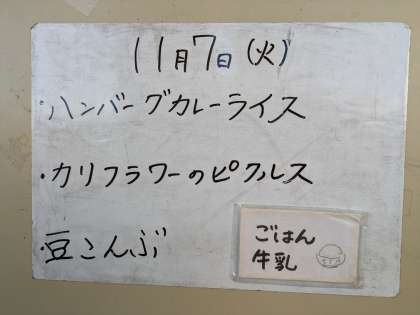 11月7日(火)
・ハンバーグカレーライス
・カリフラワーのピクルス
・豆こんぶ
ごはん
牛乳